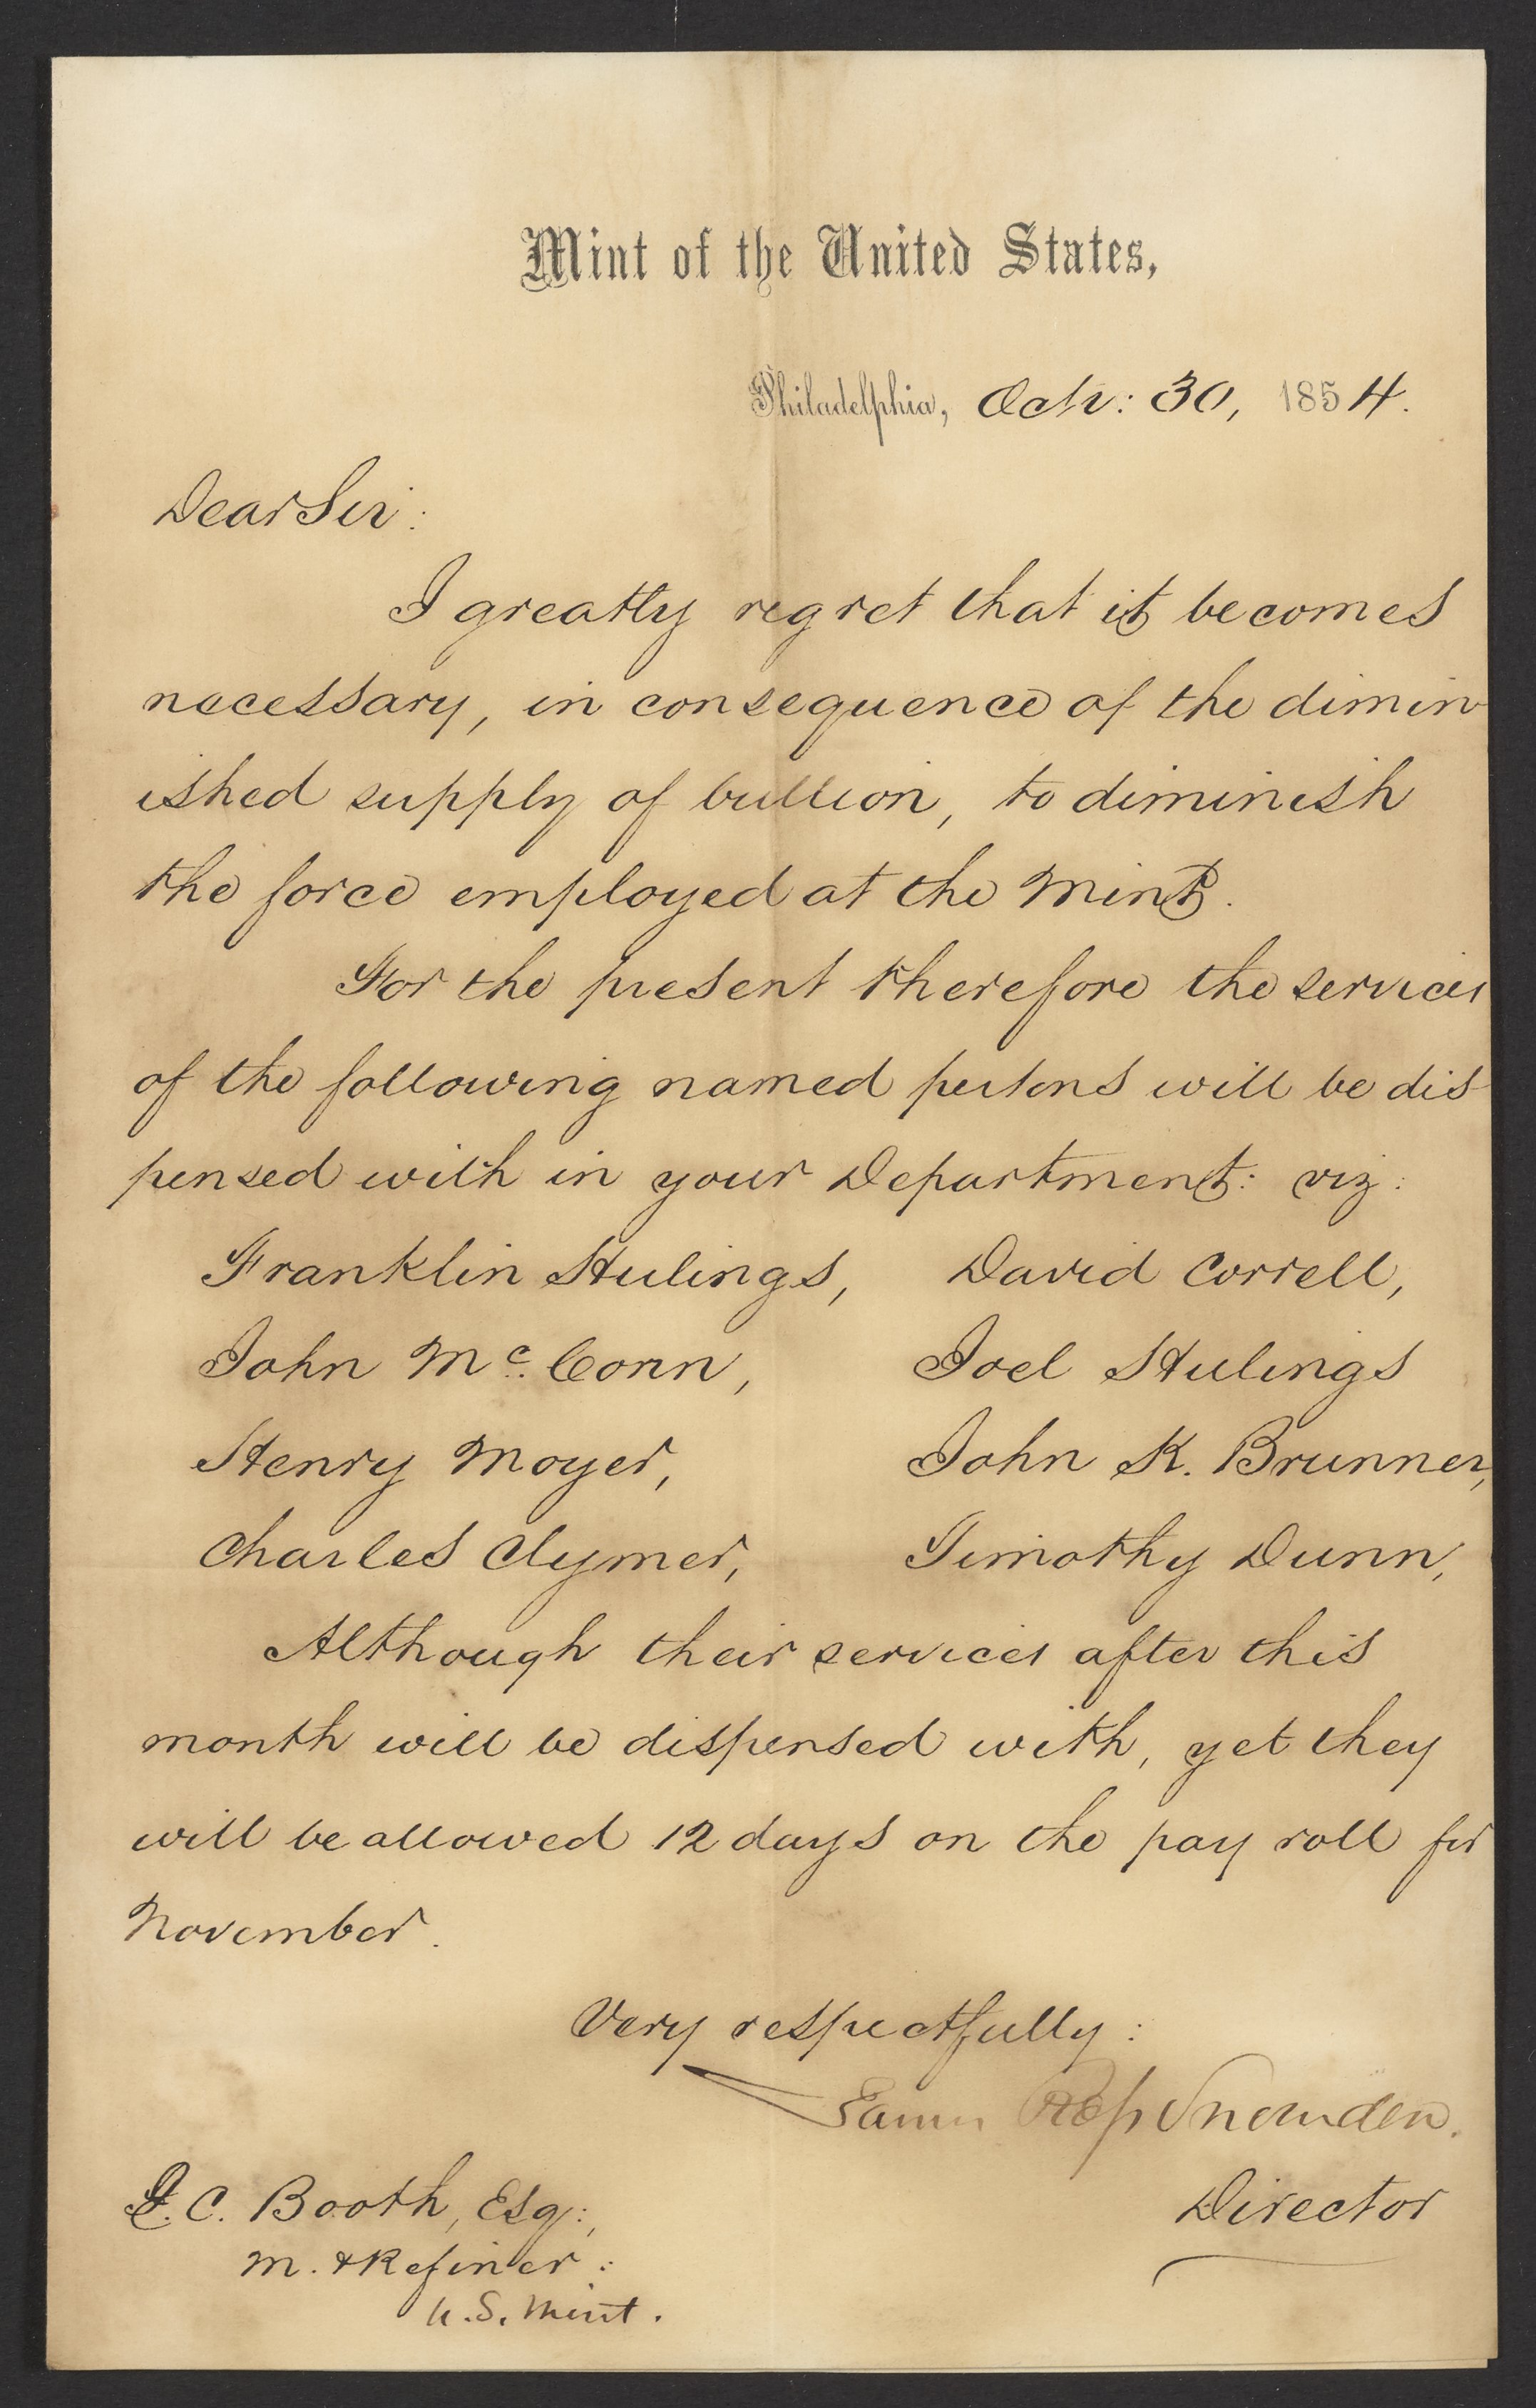 Mint of the United States,
Philadelphia, Octr: 30, 1854.
Dear Sir:
I greatly regret that it becomes
necessary, in consequence of the dimin-
ished supply of bullion, to diminish
the force employed at the Mint.
For the present therefore the services
of the following named persons will be dis-
pensed with in your Department: viz:
Franklin Hulings, David Correll,
John Mc. Conn, Joel Hulings
Henry Moyer, John K. Brunner,
Charles Clymer, Timothy Dunn,
Although their services after this
month will be dispensed with, yet they
will be allowed 12 days on the pay roll for
November.
Very respectfully:
James Ross Snowden.
Director
J. C. Booth, Esq:,
M. & Refiner:
U.S. Mint.